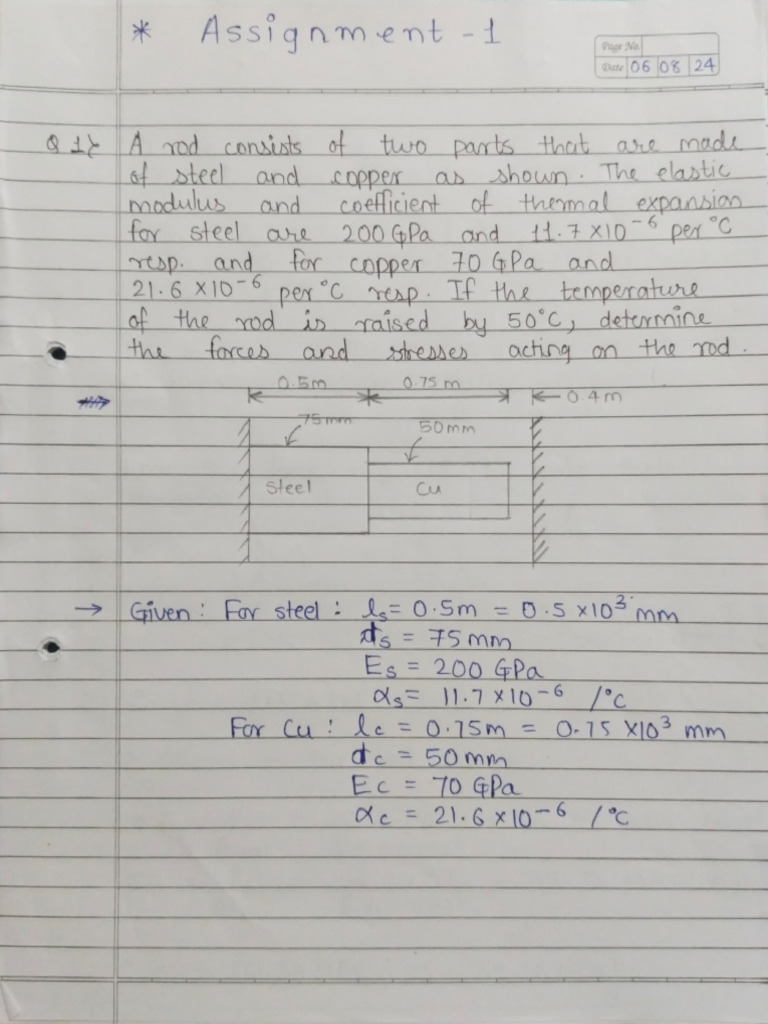 * Assignment - 1
Page No.
Date 06 08 24
Q 1} A rod consists of two parts that are made
of steel and copper as shown. The elastic
modulus and coefficient of thermal expansion
for steel are 200 GPa and 11.7 x10-6 per °C
resp. and for copper 70 GPa and
21.6 x10-6 per °C resp. If the temperature
of the rod is raised by 50°C, determine
the forces and stresses acting on the rod.
0.5m 0.75 m 0.4m
75mm 50mm
Steel Cu
→ Given : For steel : ls = 0.5m = 0.5 x10³ mm
ds = 75 mm
Es = 200 GPa
αs = 11.7 x 10-6 /°C
For Cu : lc = 0.75m = 0.75 x10³ mm
dc = 50 mm
Ec = 70 GPa
αc = 21.6 x 10-6 /°C